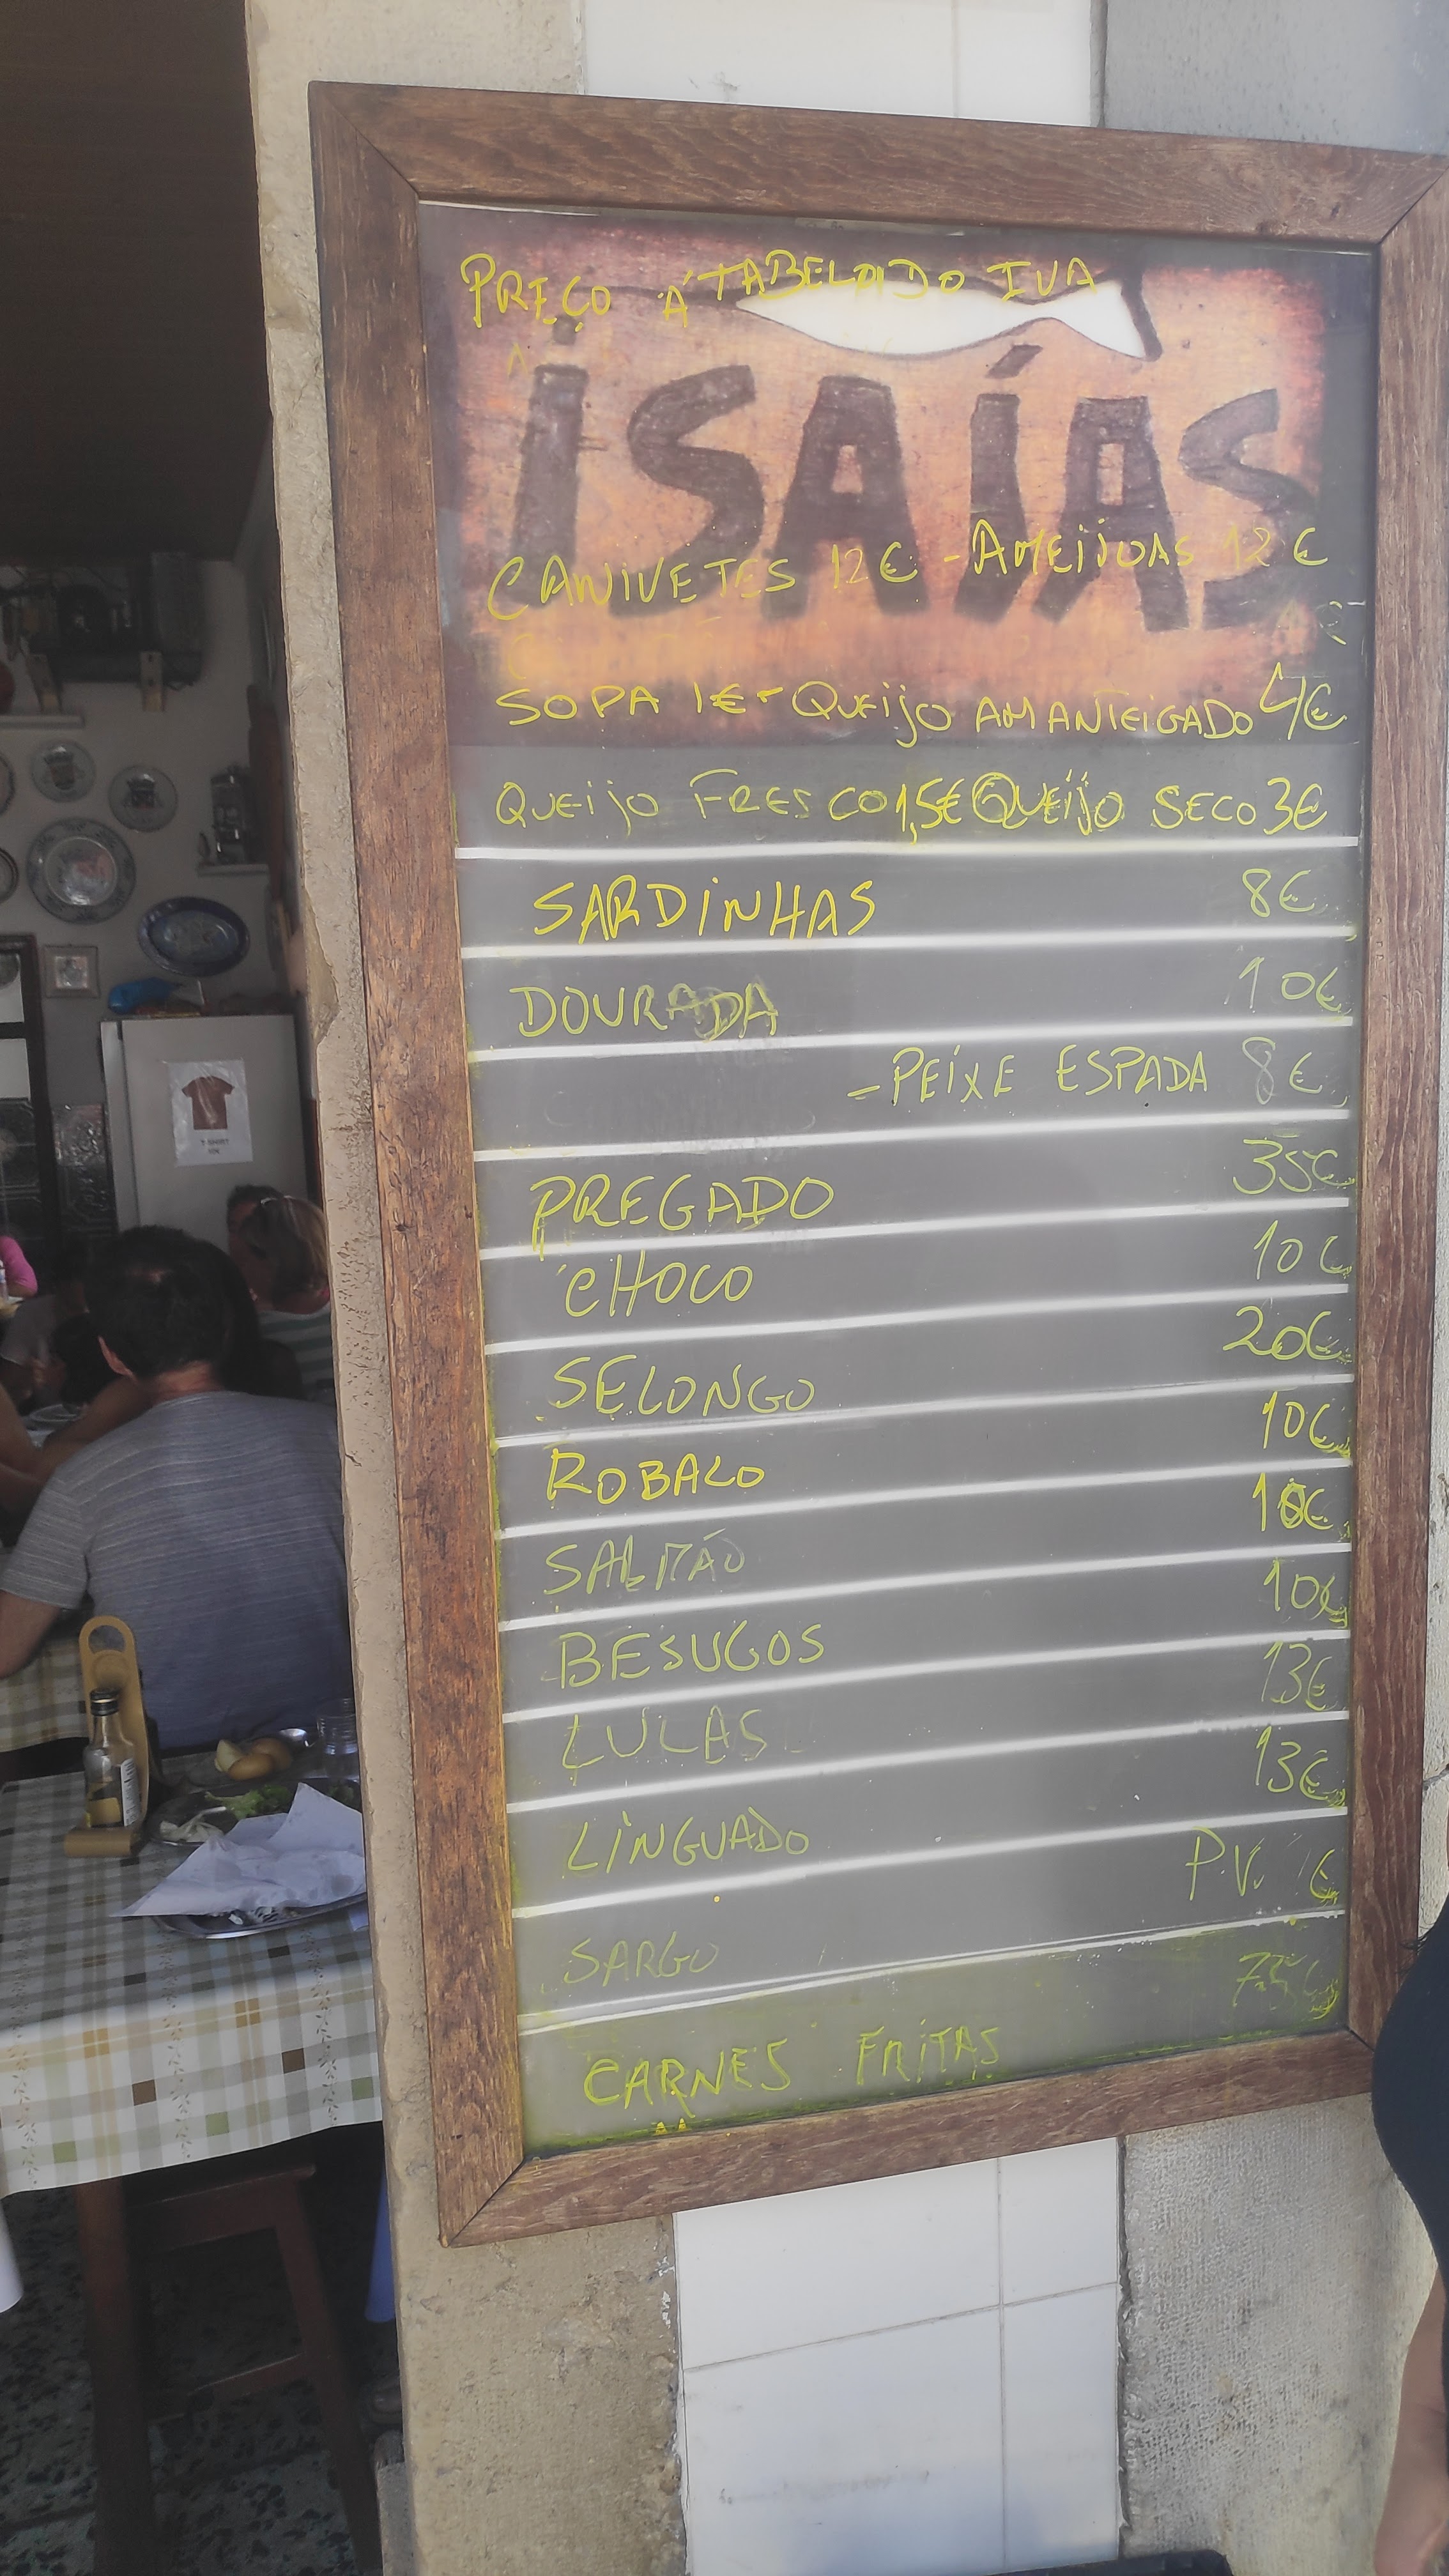 PREÇO Á TABELADO IVA
ISAÍAS
CANIVETES 12€ - AMEIJOAS 12€
SOPA 1€ - QUEIJO AMANTEIGADO 4€
QUEIJO FRESCO 1,5€ QUEIJO SECO 3€
SARDINHAS 8€
DOURADA 10€
- PEIXE ESPADA 8€
PREGADO 35€
CHOCO 10€
SELONGO 20€
ROBALO 10€
SALMÃO 10€
BESUGOS 10€
LULAS 13€
LINGUADO 13€
SARGO P.V. €
CARNES FRITAS
T-SHIRT